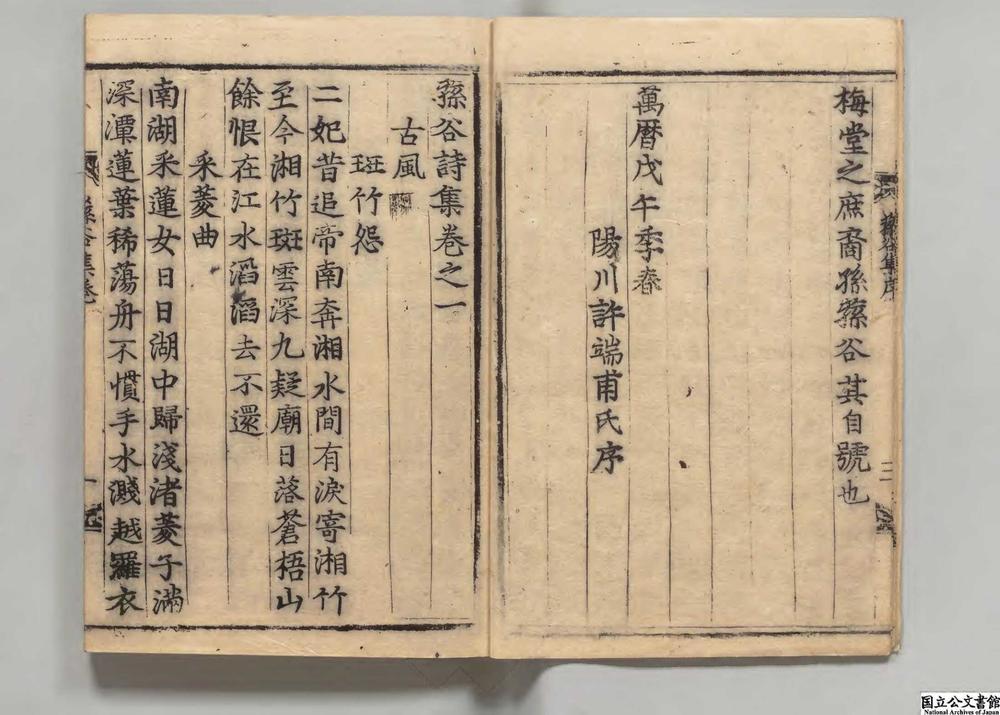 梅堂之庶裔孫蓀谷其自號也
萬曆戊午季春
陽川許端甫氏序
蓀谷集序
三
蓀谷詩集卷之一
古風
斑竹怨
二妃昔追帝南奔湘水間有淚寄湘竹
至今湘竹斑雲深九疑廟日落蒼梧山
餘恨在江水滔滔去不還
采菱曲
南湖采蓮女日日湖中歸淺渚菱子滿
深潭蓮葉稀蕩舟不慣手水濺越羅衣
蓀谷集卷
一
国立公文書館
National Archives of Japan